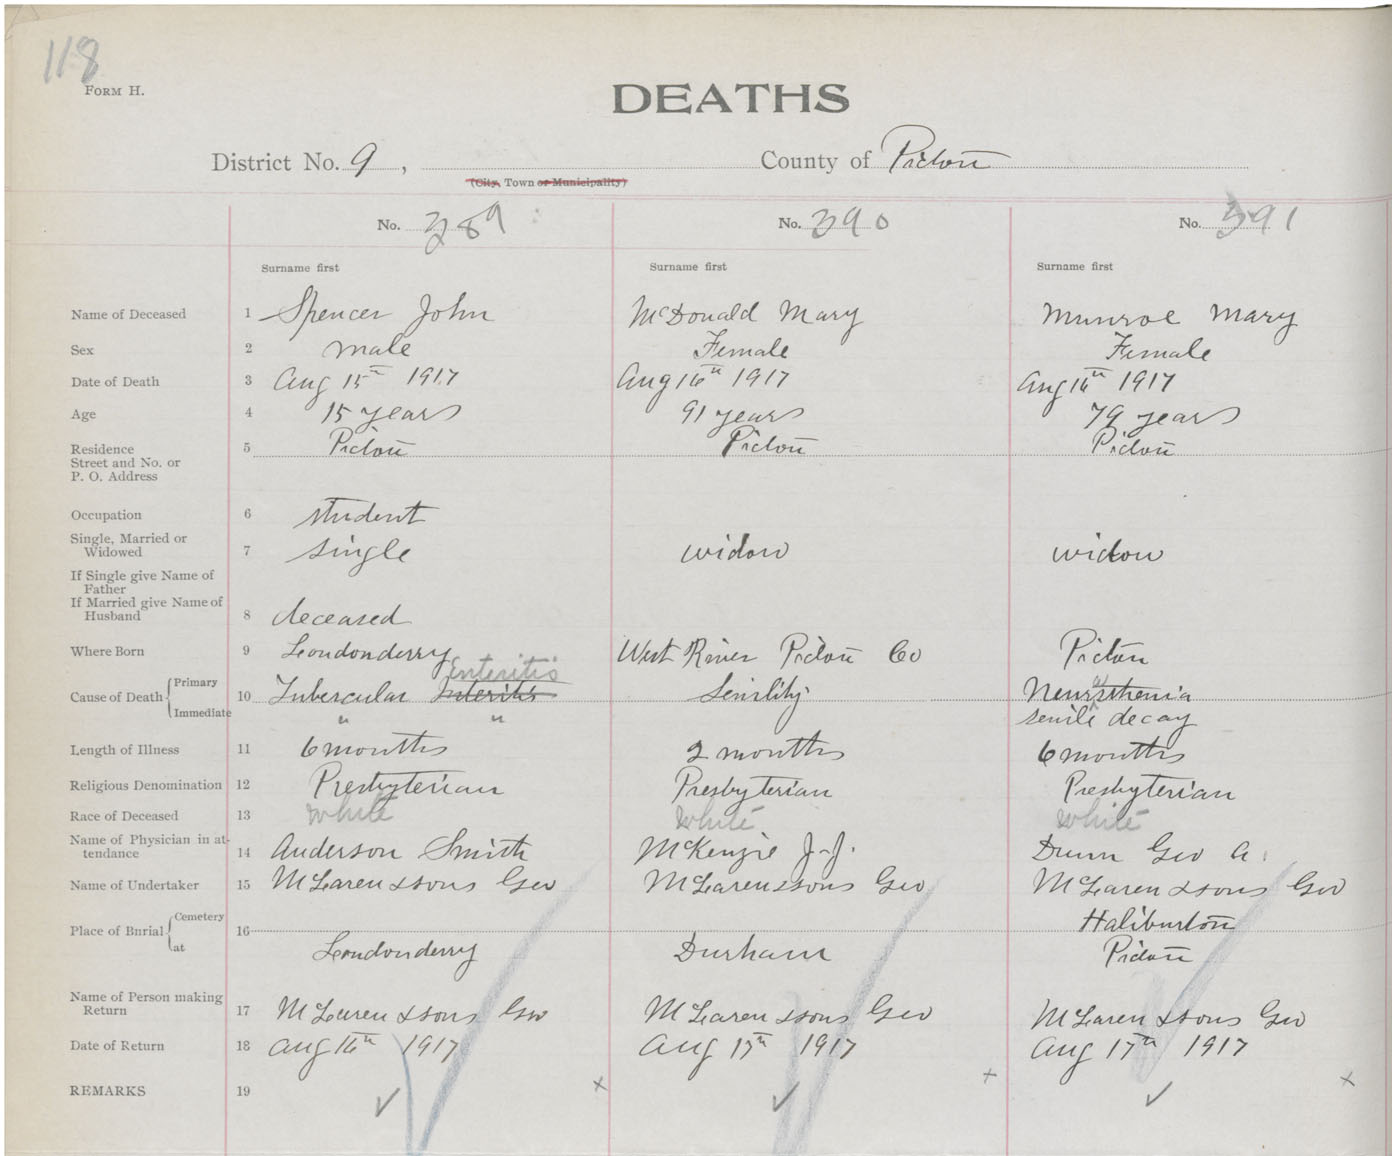 118
FORM H.
DEATHS
District No. 9, County of Pictou
(City, Town or Municipality)
No. 389 No. 390 No. 391
Surname first Surname first Surname first
Name of Deceased 1 Spencer John McDonald Mary Munroe Mary
Sex 2 male Female Female
Date of Death 3 Aug 15th 1917 Aug 16th 1917 Aug 16th 1917
Age 4 15 years 91 years 79 years
Residence 5 Pictou Pictou Pictou
Street and No. or
P. O. Address
Occupation 6 student
Single, Married or
Widowed 7 single widow widow
If Single give Name of
Father
If Married give Name of
Husband 8 deceased
Where Born 9 Londonderry West River Pictou Co Pictou
Enteritis
Cause of Death { Primary 10 Tubercular Interitis Senility Neurasthenia
Immediate " " senile decay
Length of Illness 11 6 months 2 months 6 months
Religious Denomination 12 Presbyterian Presbyterian Presbyterian
Race of Deceased 13 white white white
Name of Physician in at-
tendance 14 Anderson Smith McKenzie J.J. Dunn Geo A.
Name of Undertaker 15 McLaren & sons Geo McLaren & sons Geo McLaren & sons Geo
Place of Burial { Cemetery 16 Haliburton
at Londonderry Durham Pictou
Name of Person making
Return 17 McLaren & sons Geo McLaren & sons Geo McLaren & sons Geo
Date of Return 18 Aug 16th 1917 Aug 17th 1917 Aug 17th 1917
REMARKS 19 ✓ x ✓ + ✓ x